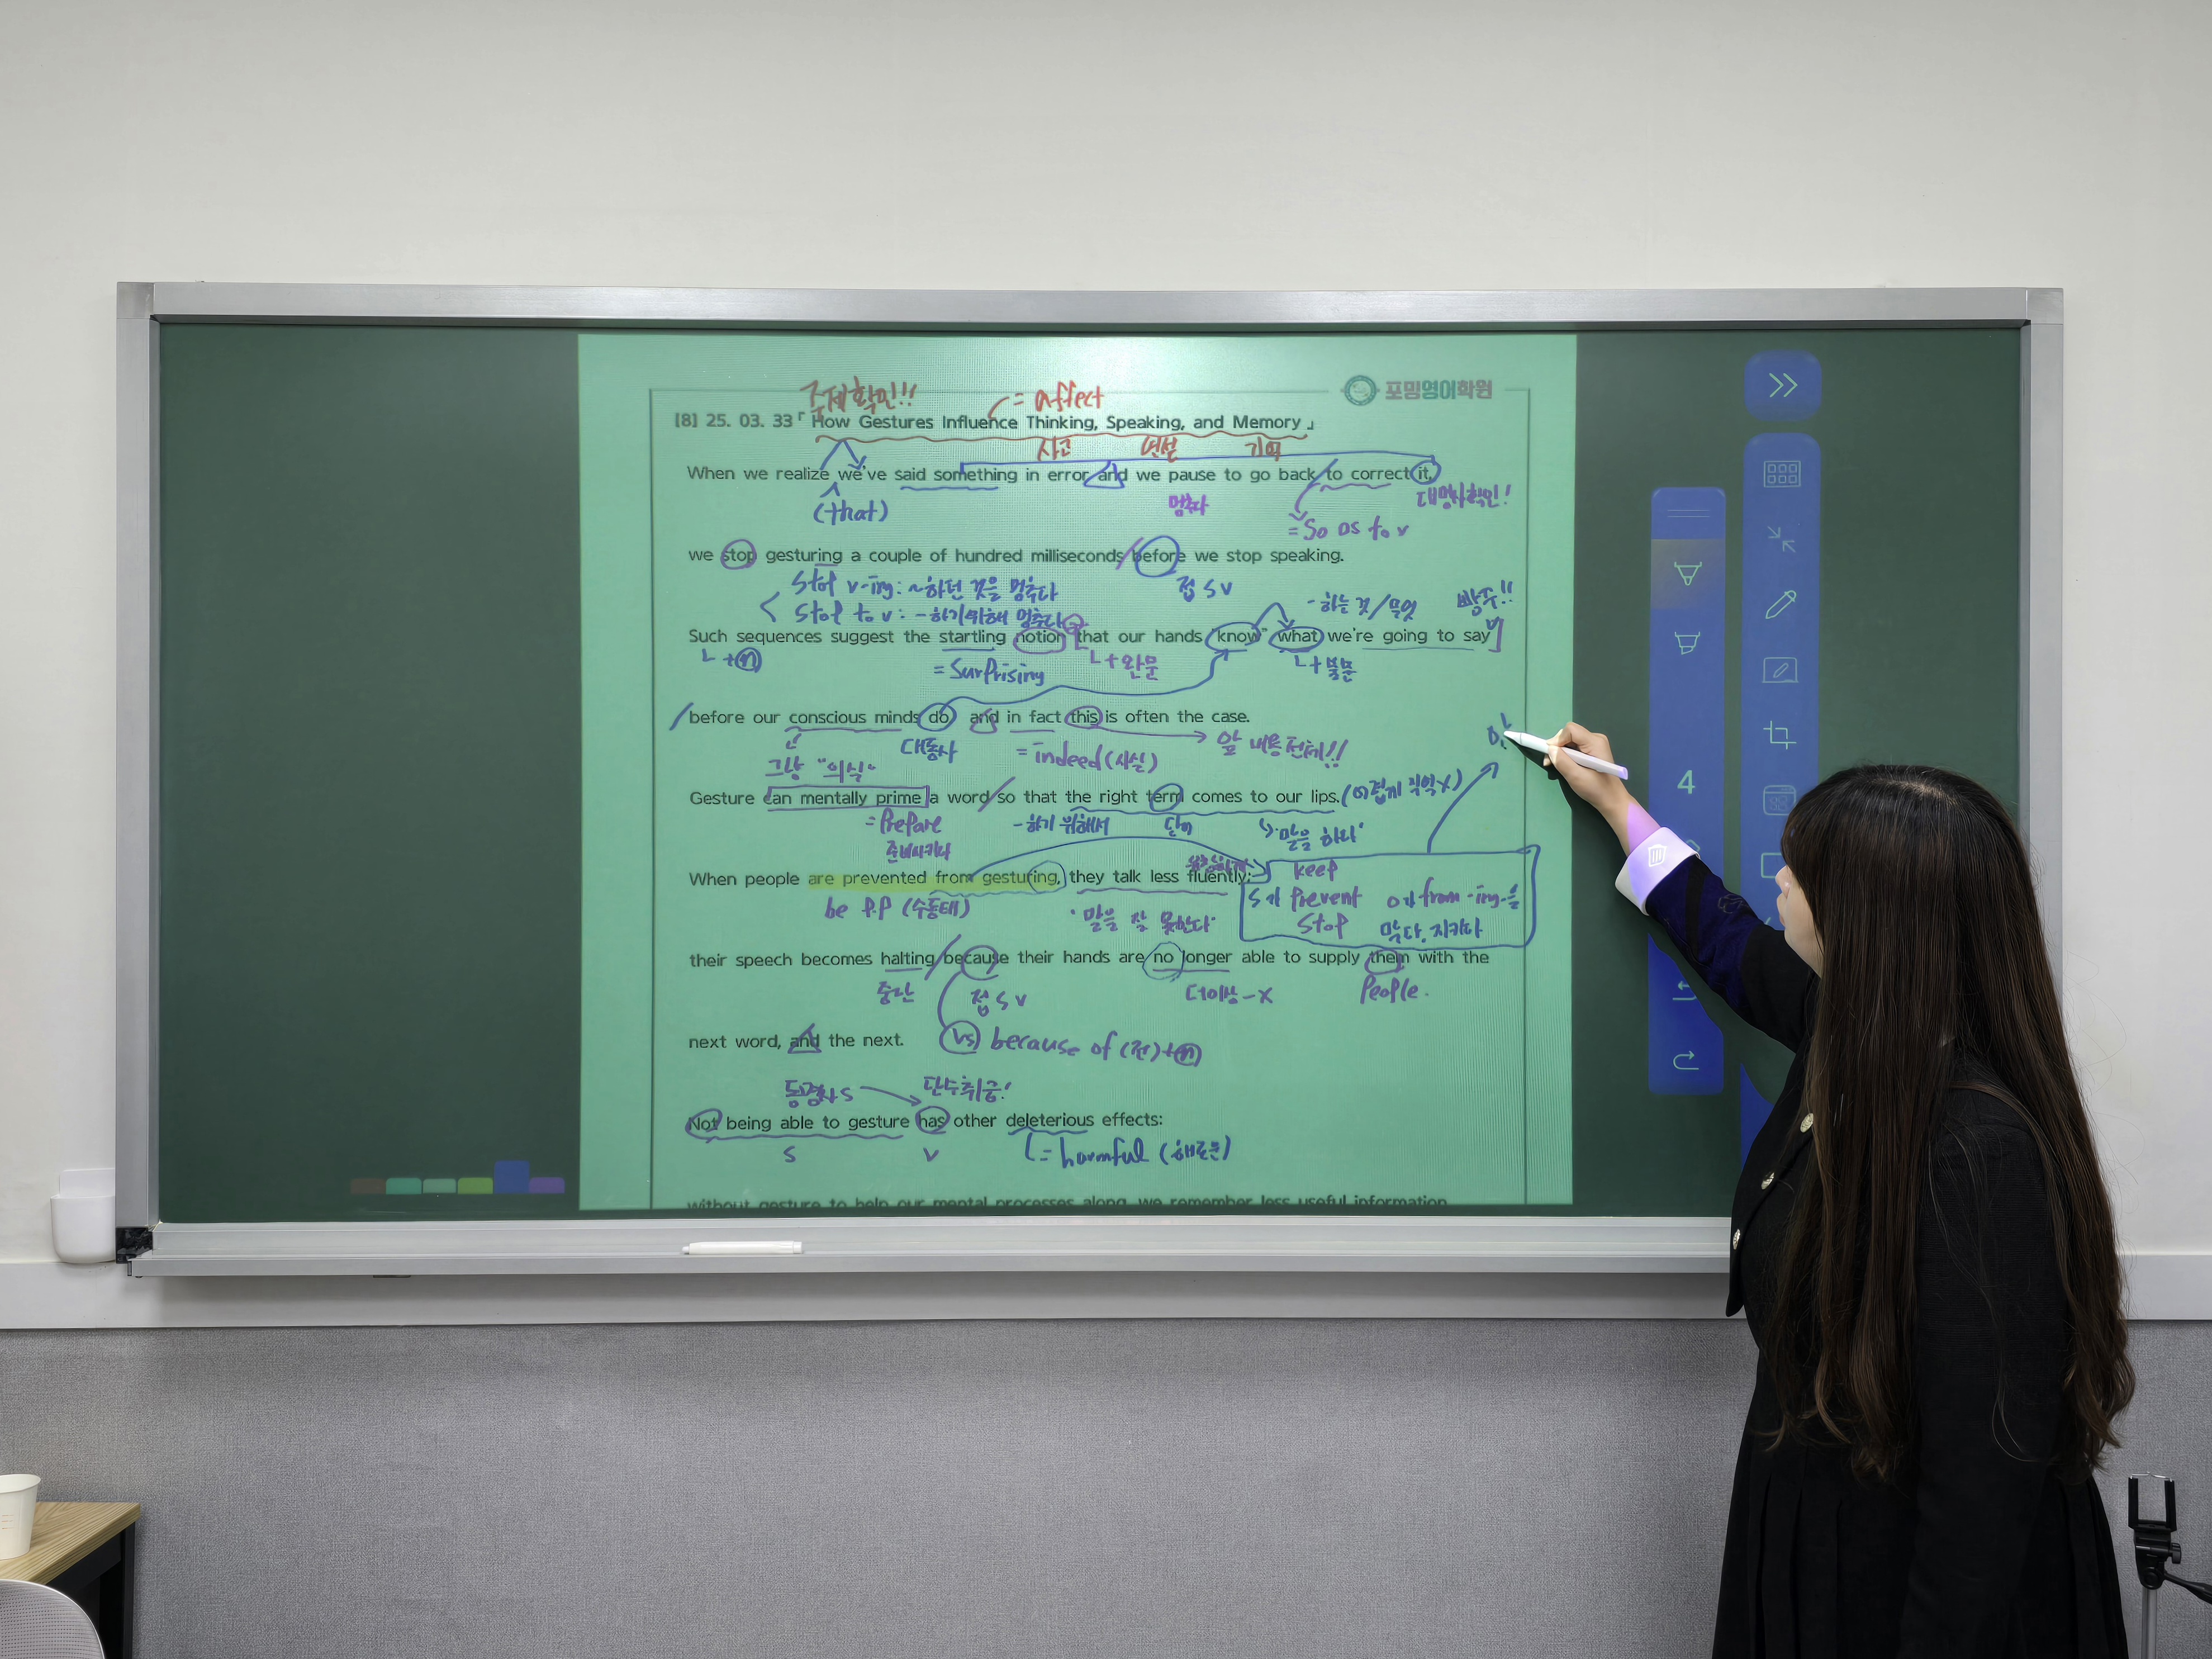 주제확인!!
= affect
포밍영어학원
[8] 25. 03. 33「How Gestures Influence Thinking, Speaking, and Memory」
사고 연설 기억
When we realize we've said something in error and we pause to go back to correct it,
(that) 멈추다 = So as to v 대명사확인!
we stop gesturing a couple of hundred milliseconds before we stop speaking.
stop v-ing : ~하던 것을 멈추다 접 S V
stop to v : ~하기위해 멈추다 -하는 것/무엇
Such sequences suggest the startling notion that our hands "know" what we're going to say
L + n = Surprising L+완문 L+불문
before our conscious minds do, and in fact this is often the case.
대동사 = indeed (사실) 앞 내용전체!!
그냥 "의식"
Gesture can mentally prime a word so that the right term comes to our lips. (어렵게 직역X)
= Prepare -하기 위해서 단어 '말을 하다'
준비시키다
When people are prevented from gesturing, they talk less fluently;
be P.P (수동태) '말을 잘 못한다'
keep
S가 Prevent O가 from -ing를
Stop 막다, 지키다
their speech becomes halting because their hands are no longer able to supply them with the
중단 접 S V 더이상-X People.
next word, and the next.
vs because of (전)+n
동명사S 단수취급!
Not being able to gesture has other deleterious effects:
S V = harmful (해로운)
without gesture to help our mental processes along, we remember less useful information
4